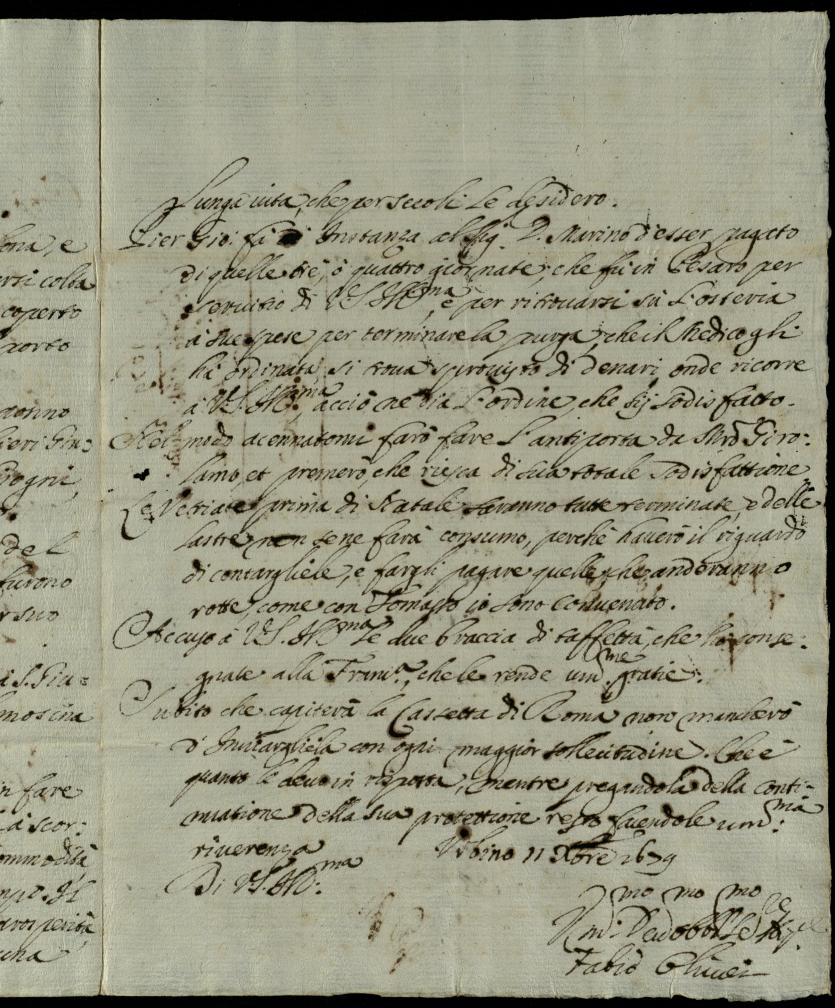 lona, e
arsi colla
coperto
porto
danno
lieri Gin=
Bogni,
del
furono
r suo
a S. Giu=
mosina
n fare
à scor:
ommodità
prosperità,
una
lunga uita, che per secoli le desidero.
Pier Gio: fà di Instanza al Sig.r D. Marino d'esser pagato
di quelle trè, ò quattro giornate, che fù in Pesaro per
seruitio di V.S. Ill.ma, e per ritrouarsi sù l'osteria
à sue spese per terminare la purga, che il Medico gli
hà ordinata si troua sprouisto di denari, onde ricorre
à V.S. Ill.ma acciò ne dia l'ordine, che sij sodisfatto.
Nel modo acennatomi farò fare l'antiporta da M.ro Giro:
lamo, et premerò, che riesca di sua totale sodisfattione
Le Vetriate prima di Natale saranno tutte terminate, e delle
lastre non se ne farà consumo, perche hauerò il riguardo
di contargliele, e fargli pagare quelle, che anderanno
rotte, come con Tomasso io sono conuenuto.
Accuso à V.S. Ill.ma le due braccia di taffettà, che hò conse:
gnate alla Franc.a, che le rende um.me gratie.
Subito che capiterà la Cassetta di Roma non mancherò
d'Inuiargliela con ogni maggior sollecitudine. Che è
quanto le deuo in risposta, mentre pregandola della conti=
nuatione della sua protettione resto facendole um.ma
riuerenza Vrbino 11 Xbre 1679
Di V.S. Ill.ma
Um.mo Deu.mo Obbl.mo Se.re
Fabio Oliuieri